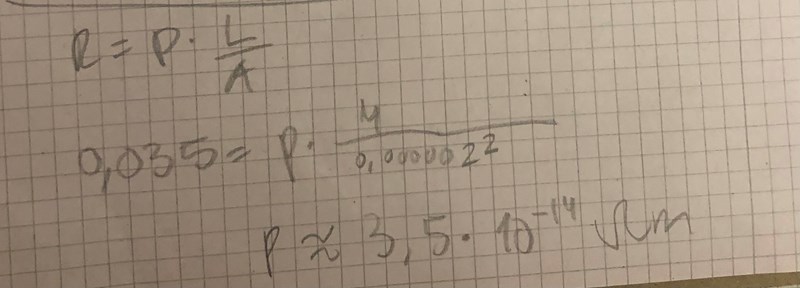 R = ρ · L/A
0,035 = ρ · 4/0,000002²
ρ ≈ 3,5 · 10⁻¹⁴ Ωm